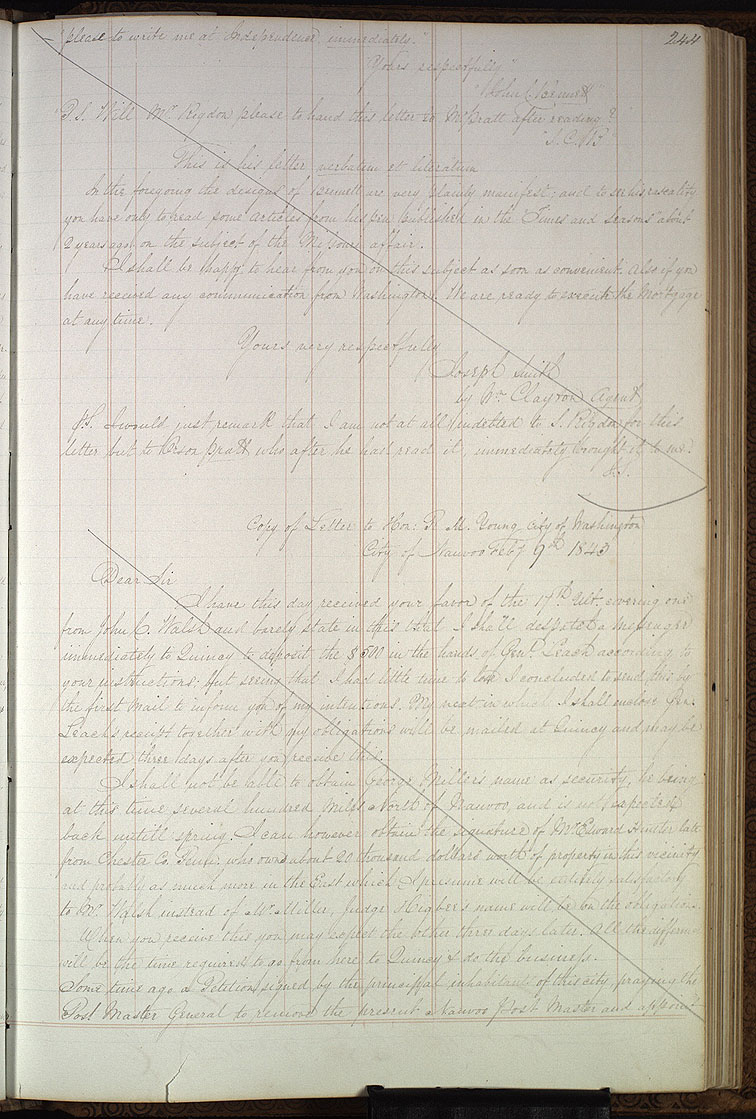 244
please to write me at Independence, immediately."
"Yours, respectfully"
"John C. Bennett"
P.S. Will Mr. Rigdon please to hand this letter to Mr Pratt after reading?"
"J. C. B"
This is his letter verbatim et literatim
In the foregoing the designs of Bennett are very plainly manifest; and to see his rascality
you have only to read some articles from his pen published in the "Times and Seasons" about
2 years ago on the subject of the Missouri affair.
I shall be happy to hear from you on this subject as soon as convenient. Also if you
have received any communication from Washington. We are ready to execute the Mortgage
at any time.
Yours very respectfully
Joseph Smith
by Wm Clayton Agent
P.S. I would just remark that I am not at all indebted to S. Rigdon for this
letter but to Orson Pratt who after he had read it, immediately brought it to me.
&.
Copy of Letter to Hon: R. M. Young, city of Washington
City of Nauvoo Feby 9th 1843
Dear Sir
I have this day received your favor of the 17th Ult. covering one
from John C. Walsh and barely state in this that I shall despatch a messenger
immediately to Quincy to deposit the $500 in the hands of Genl Leach according to
your instructions; but seeing that I had little time to lose I concluded to send this by
the first mail to inform you of my intentions. My next in which I shall enclose Gen.
Leach's receipt together with my obligations will be mailed at Quincy and may be
expected three days after you receive this.
I shall not be able to obtain George Millers name as security, he being
at this time several hundred miles North of Nauvoo, and is not expected
back untill spring. I can however obtain the signature of Mr Edward Hunter late
from Chester Co. Penn: who owns about 20 thousand dollars worth of property in this vicinity
and probably as much more in the East which I presume will be entirely satisfactory
to Mr Walsh instead of Mr Miller, Judge Higbee's name will be on the obligations.
When you receive this you may expect the other three days later. All the differenc
will be the time required to go from here to Quincy & do the business.
Some time ago a Petition signed by the principal inhabitants of this city, praying the
Post Master General to remove the present Nauvoo Post Master and appoint